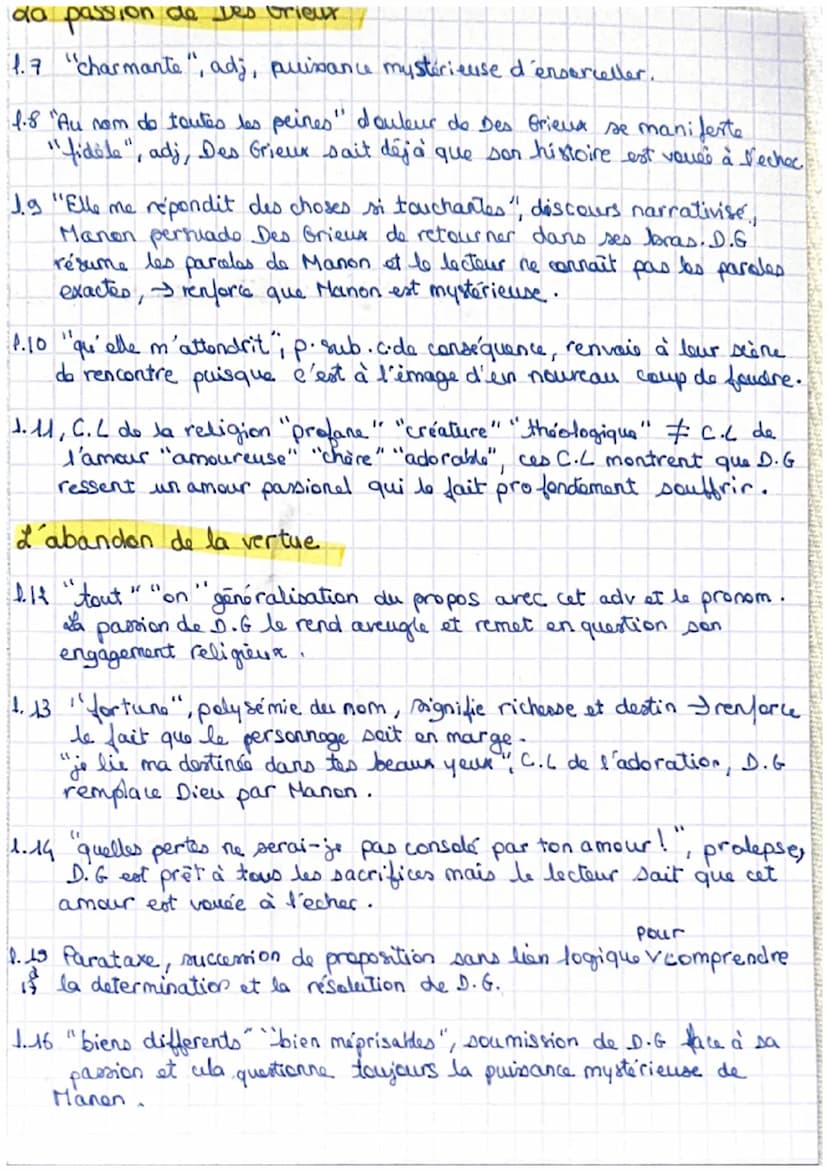 La passion de Des Grieux
l.7 "charmante", adj, puissance mystérieuse d'ensorceller.
l.8 "Au nom de toutes les peines" douleur de Des Grieux se manifeste
"fidèle", adj, Des Grieux sait déjà que son histoire est vouée à l'echec
l.9 "Elle me répondit des choses si touchantes", discours narrativisé,
Manon persuade Des Grieux de retourner dans ses bras. D.G
résume les paroles de Manon et le lecteur ne connaît pas les paroles
exactes, → renforce que Manon est mystérieuse.
l.10 "qu'elle m'attendrit", p. sub. c. de conséquence, renvoie à leur scène
de rencontre puisque c'est à l'image d'un nouveau coup de foudre.
l.11, C.L de la religion "profane" "créature" "théologique" ≠ C.L de
l'amour "amoureuse" "chère" "adorable", ces C.L montrent que D.G
ressent un amour passional qui le fait profondement souffrir.
L'abandon de la vertue
l.12 "tout" "on" généralisation du propos avec cet adv et le pronom.
La passion de D.G le rend aveugle et remet en question son
engagement religieux.
l.13 "fortune", polysémie du nom, signifie richesse et destin → renforce
le fait que le personnage soit en marge.
"je lie ma destinée dans tes beaux yeux", C.L de l'adoration, D.G
remplace Dieu par Manon.
l.14 "quelles pertes ne serai-je pas consolé par ton amour!", prolepse,
D.G est prêt à tous les sacrifices mais le lecteur sait que cet
amour est vouée à l'echec.
pour
l.15 Parataxe, succession de proposition sans lien logique v comprendre
la determination et la résolution de D.G.
l.16 "biens differents" "bien méprisables", soumission de D.G face à sa
passion et cela questionne toujours la puissance mystérieuse de
Manon.